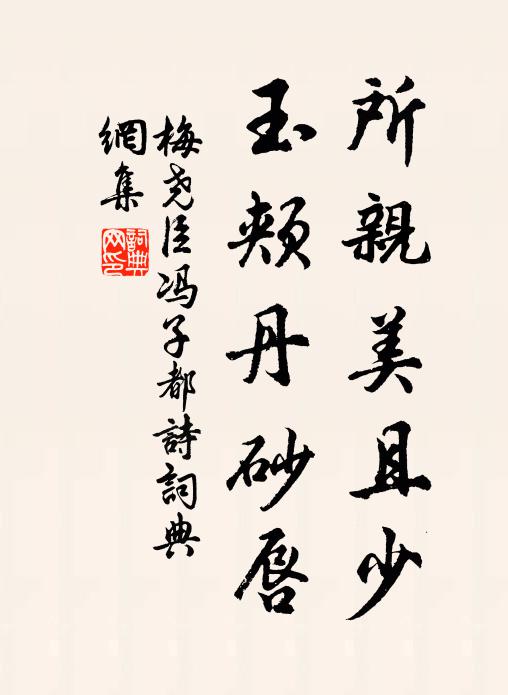 所親美且少
玉頰丹砂唇
梅尧臣冯子都詩詞典
網集
詞典網印